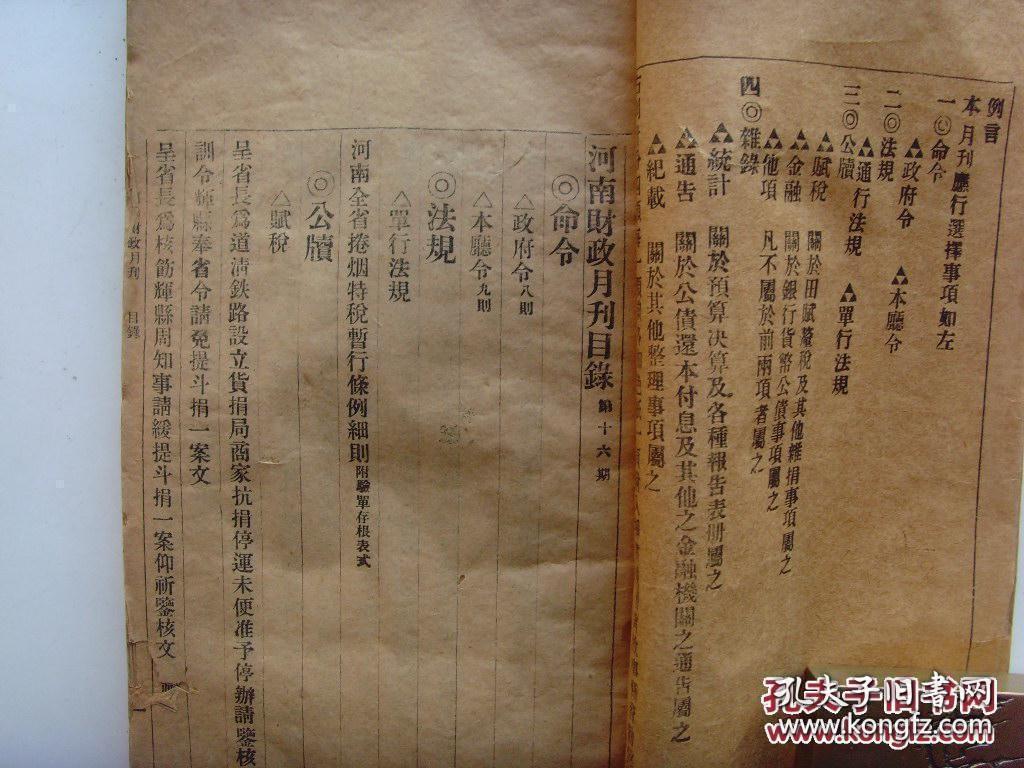 例言
本月刊應行選擇事項如左
一◎命令
△政府令 △本廳令
二◎法規
△通行法規 △單行法規
三◎公牘
△賦稅 關於田賦釐稅及其他雜捐事項屬之
△金融 關於銀行貨幣公債事項屬之
△他項 凡不屬於前兩項者屬之
四◎雜錄
△統計 關於預算決算及各種報告表册屬之
△通告 關於公債還本付息及其他之金融機關之通告屬之
△紀載 關於其他整理事項屬之
河南財政月刊目錄 第十六期
◎命令
△政府令八則
△本廳令九則
◎法規
△單行法規
河南全省捲烟特稅暫行條例細則附驗單存根表式
◎公牘
△賦稅
呈省長爲道淸鉄路設立貨捐局商家抗捐停運未便准予停辦請鑒核
訓令輝縣奉省令請免提斗捐一案文
呈省長爲核飭輝縣周知事請緩提斗捐一案仰祈鑒核文
財政月刊 目錄 一
孔夫子旧书网
www.kongfz.com